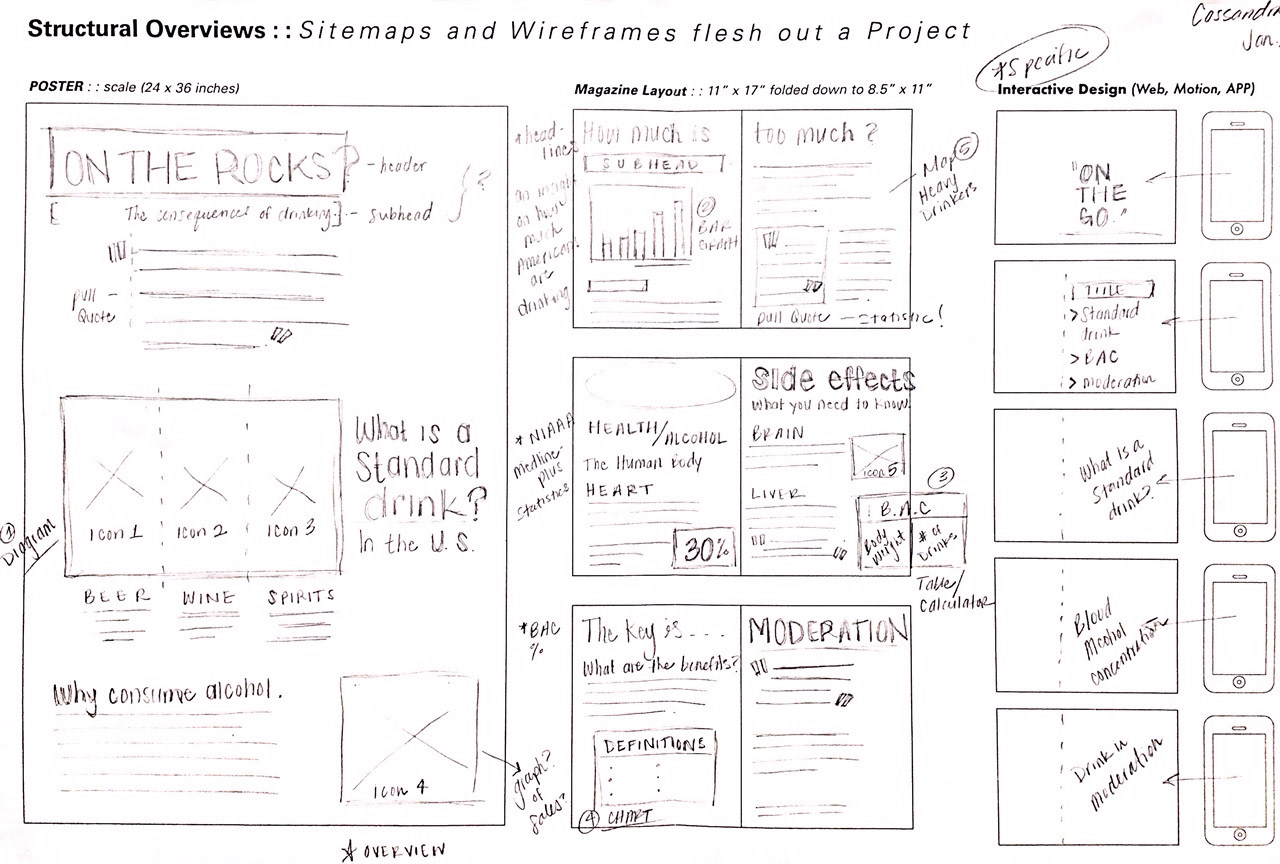 Structural Overviews :: Sitemaps and Wireframes flesh out a Project
Jan.
*Specific
POSTER :: scale (24 x 36 inches)
ON THE ROCKS?
- header
?
[ The consequences of drinking. ] - subhead
pull -
Quote
What is a
Standard
drink?
In the U.S.
Icon 1
Icon 2
Icon 3
① Diagram
BEER
WINE
SPIRITS
Why consume alcohol.
Icon 4
graph?
of
sales?
* OVERVIEW
Magazine Layout :: 11" x 17" folded down to 8.5" x 11"
*head-
lines
How much is
too much?
SUBHEAD
on how
much
Americans
are
drinking
②
BAR
⑤
Map
Heavy
Drinkers
Pull Quote — Statistic!
* NIAAA
Medline
Plus
Statistics
HEALTH/ALCOHOL
The Human Body
HEART
30%
Side effects
What you need to know.
BRAIN
icon 5
LIVER
③
B.A.C
Body
Weight
# of
Drinks
Table/
Calculator
*BAC
%
The key is ....
MODERATION
What are the benefits?
DEFINITIONS
④ CHART
Interactive Design (Web, Motion, APP)
"ON
THE
GO."
TITLE
> Standard
drink
> BAC
> moderation
What is a
Standard
drink?
Blood
Alcohol
concentration
Drink in
moderation